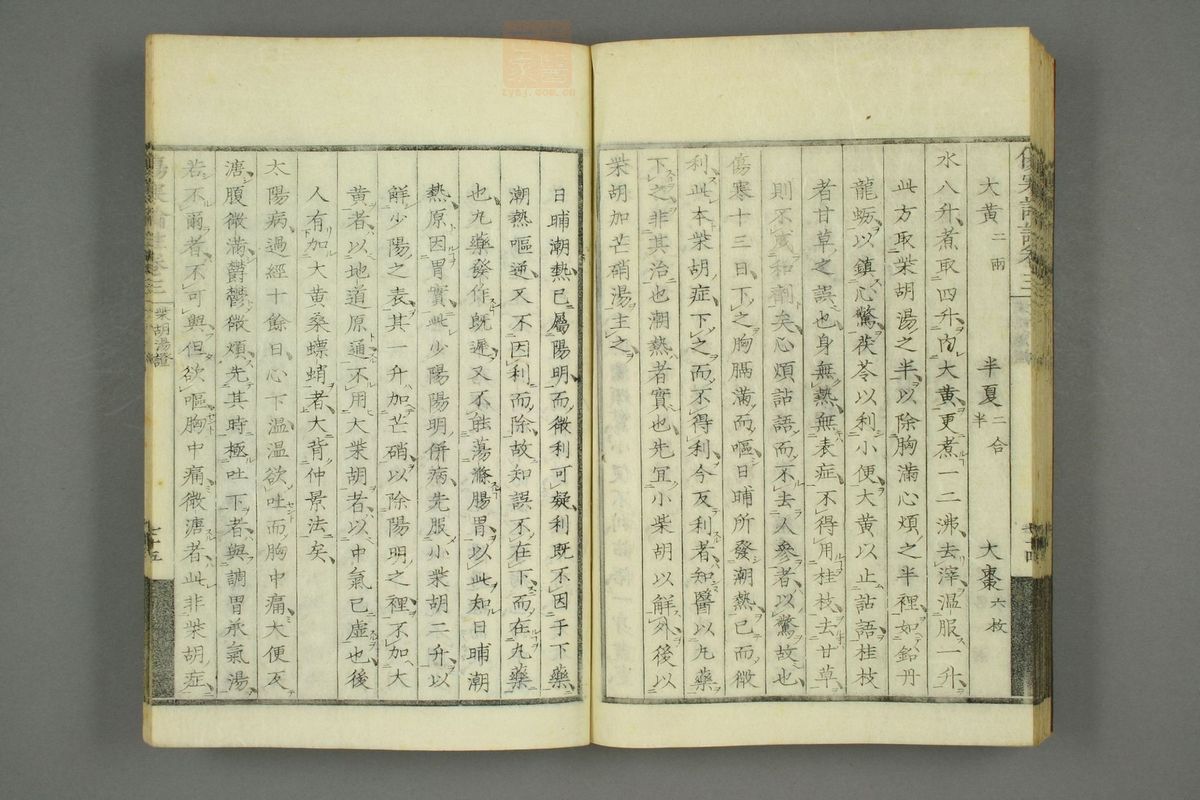 大黃二兩 半夏二合半 大棗六枚
水八升煮取四升內大黃更煮一二沸去滓溫服一升
此方取柴胡湯之半以除胸滿心煩之半裡如鉛丹
龍蛎以鎮心驚茯苓以利小便大黃以止詀語桂枝
者甘草之誤也身無熱無表症不得用桂枝去甘草
則不成和劑矣心煩詀語而不去人參者以驚故也
傷寒十三日下之胸膈滿而嘔日晡所發潮熱已而微
利此本柴胡症下之而不得利今反利者知醫以丸藥
下之非其治也潮熱者實也先宜小柴胡以解外後以
柴胡加芒硝湯主之
日晡潮熱已屬陽明而微利可疑利既不因于下藥
潮熱嘔逆又不因利而除故知誤不在下而在丸藥
也丸藥發作既遲又不能蕩滌腸胃以此知日晡潮
熱原因胃實此少陽陽明併病先服小柴胡二升以
解少陽之表其一升加芒硝以除陽明之裡不加大
黃者以地道原通不用大柴胡者以中氣已虛也後
人有加大黃桑螵蛸者大背仲景法矣
太陽病過經十餘日心下溫溫欲吐而胸中痛大便反
溏腹微滿鬱鬱微煩先其時極吐下者與調胃承氣湯
若不爾者不可與但欲嘔胸中痛微溏者此非柴胡症
柴胡湯證